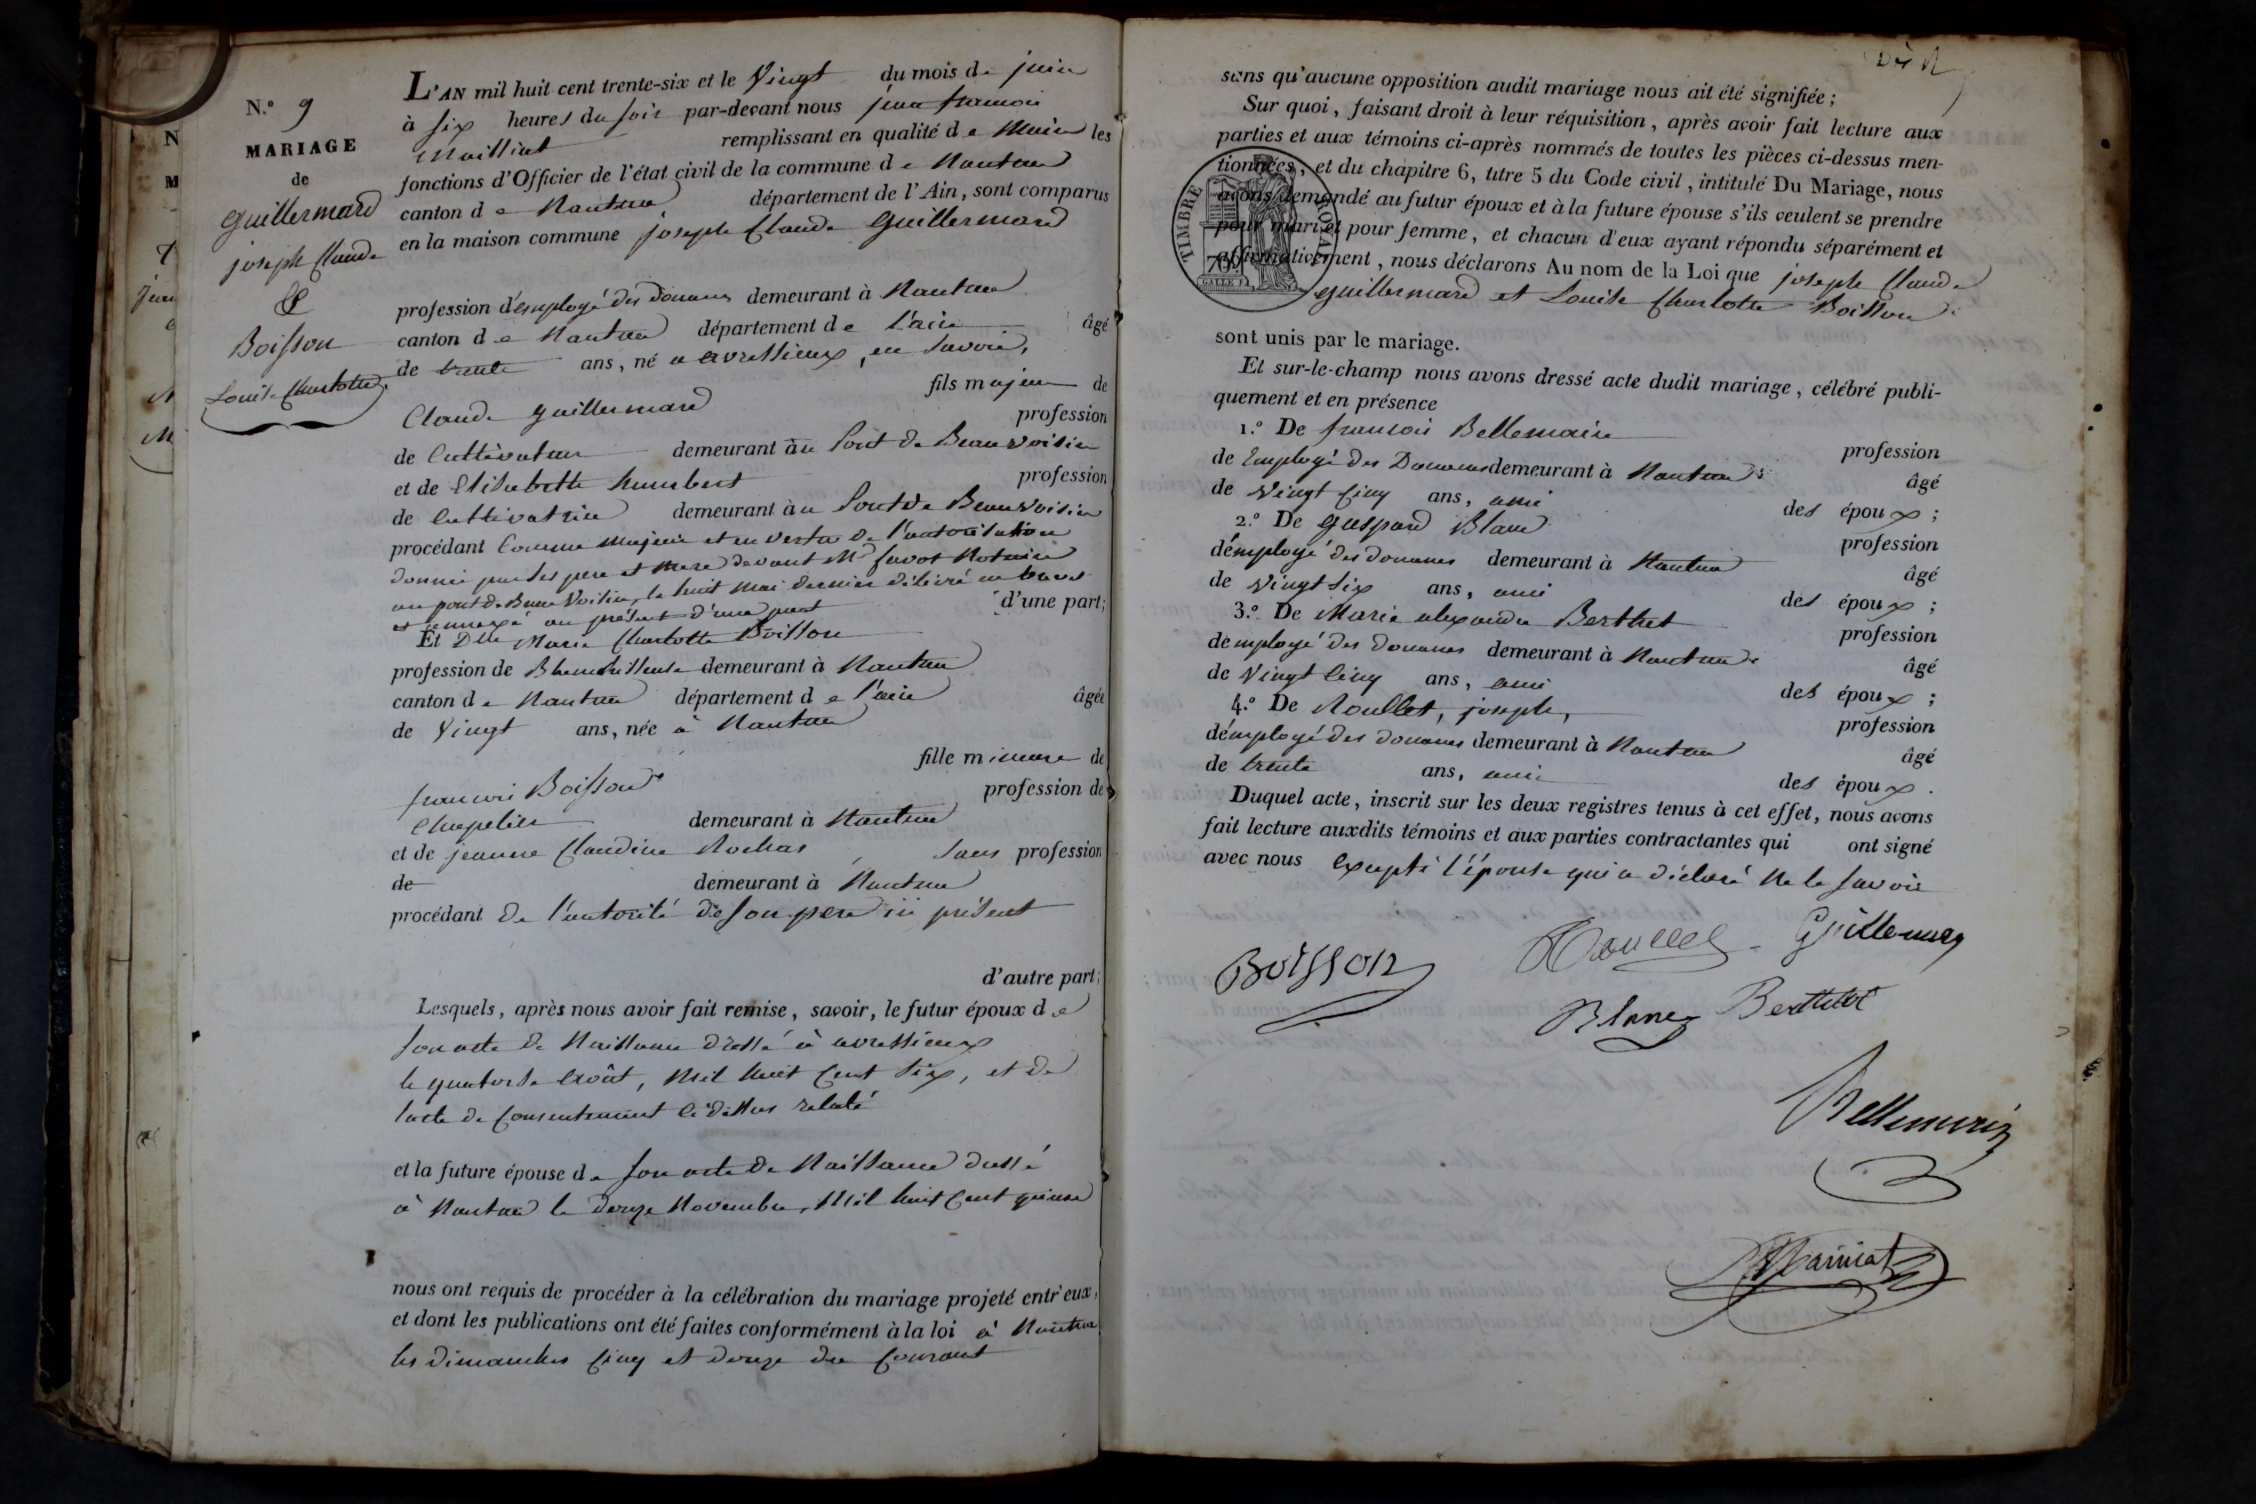 N.º 9
MARIAGE
de
Guillermard
joseph Claude
&
Boisson
Louise Charlotte
L'AN mil huit cent trente-six et le Vingt du mois de juin
à six heures du soir par-devant nous jean francois
Mailliat remplissant en qualité de Maire les
fonctions d'Officier de l'état civil de la commune de Nantua
canton de Nantua département de l'Ain, sont comparus
en la maison commune joseph Claude Guillermard
profession d'employé des Douanes demeurant à Nantua
canton de Nantua département de l'ain âgé
de trente ans, né a avressieux, en Savoie,
fils majeur de
Claude Guillermard profession
de Cultivateur demeurant au Pont de Beauvoisin
et de Elisabette humbert profession
de Cultivatrice demeurant au Pont de Beauvoisin
procédant Comme majeur et en vertu de l'autorisation
donnée par ses pere et mere devant Me favot Notaire
au pont de Beau Voisin, le huit mai dernier délivré en brevet
et annexé au présent d'une part d'une part;
Et Dlle Marie Charlotte Boisson
profession de demeurant à Nantua
canton de Nantua département de l'ain âgée
de Vingt ans, née à Nantua
fille mineure de
francois Boisson profession de
Chapelier demeurant à Nantua
et de jeanne Claudine Rochas, sans profession
de demeurant à Nantua
procédant de l'autorité de son pere ici présent
d'autre part;
Lesquels, après nous avoir fait remise, savoir, le futur époux de
son acte de Naissance dressé à avressieux
le quatorse Août, Mil huit Cent Six, et de
lacte de Consentement ci dessus relaté
et la future épouse de son acte de Naissance dressé
à Nantua le douze Novembre, Mil huit Cent quinze
nous ont requis de procéder à la célébration du mariage projeté entr'eux,
et dont les publications ont été faites conformément à la loi à Nantua
les dimanches Cinq et douze du Courant
sans qu'aucune opposition audit mariage nous ait été signifiée;
Sur quoi, faisant droit à leur réquisition, après avoir fait lecture aux
parties et aux témoins ci-après nommés de toutes les pièces ci-dessus men-
tionnées, et du chapitre 6, titre 5 du Code civil, intitulé Du Mariage, nous
avons demandé au futur époux et à la future épouse s'ils veulent se prendre
pour mari et pour femme, et chacun d'eux ayant répondu séparément et
affirmativement, nous déclarons Au nom de la Loi que joseph Claude
Guillermard et Louise Charlotte Boisson
TIMBRE ROYAL
sont unis par le mariage.
Et sur-le-champ nous avons dressé acte dudit mariage, célébré publi-
quement et en présence
1.º De francois Bellemain profession
de Employé des Douanes demeurant à Nantua âgé
de Vingt Cinq ans, ami des époux;
2.º De Gaspard Blanc profession
d'employé des douanes demeurant à Nantua âgé
de Vingt Six ans, ami des époux;
3.º De Marie alexandre Berthet profession
d'employé des douanes demeurant à Nantua âgé
de Vingt Cinq ans, ami des époux;
4.º De Roullet, joseph, profession
d'employé des douanes demeurant à Nantua âgé
de trente ans, ami des époux.
Duquel acte, inscrit sur les deux registres tenus à cet effet, nous avons
fait lecture auxdits témoins et aux parties contractantes qui ont signé
avec nous Excepté l'épouse qui a déclaré Ne le savoir
Boisson Roullet Guillermard
Blanc Berthet
Bellemain
Mainiat